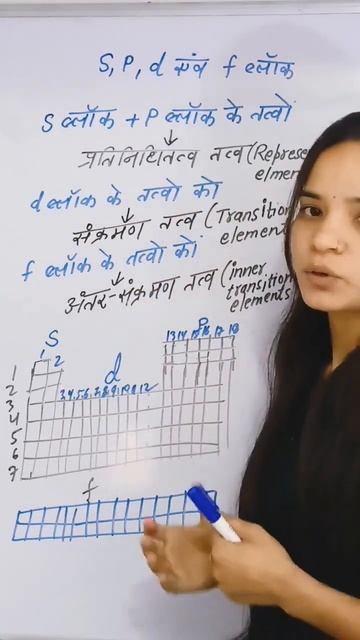 S, P, d एवं f ब्लॉक
S ब्लॉक + P ब्लॉक के तत्वों
प्रतिनिधितत्व तत्व (Represe
elmen
d ब्लॉक के तत्वो को
संक्रमण तत्व (Transition
element
f ब्लॉक के तत्वो को
अंतर-संक्रमण तत्व (inner
transition
elements
S
P
1
2
13 14 15 16 17 18
d
3 4 5 6 7 8 9 10 11 12
1
2
3
4
5
6
7
f